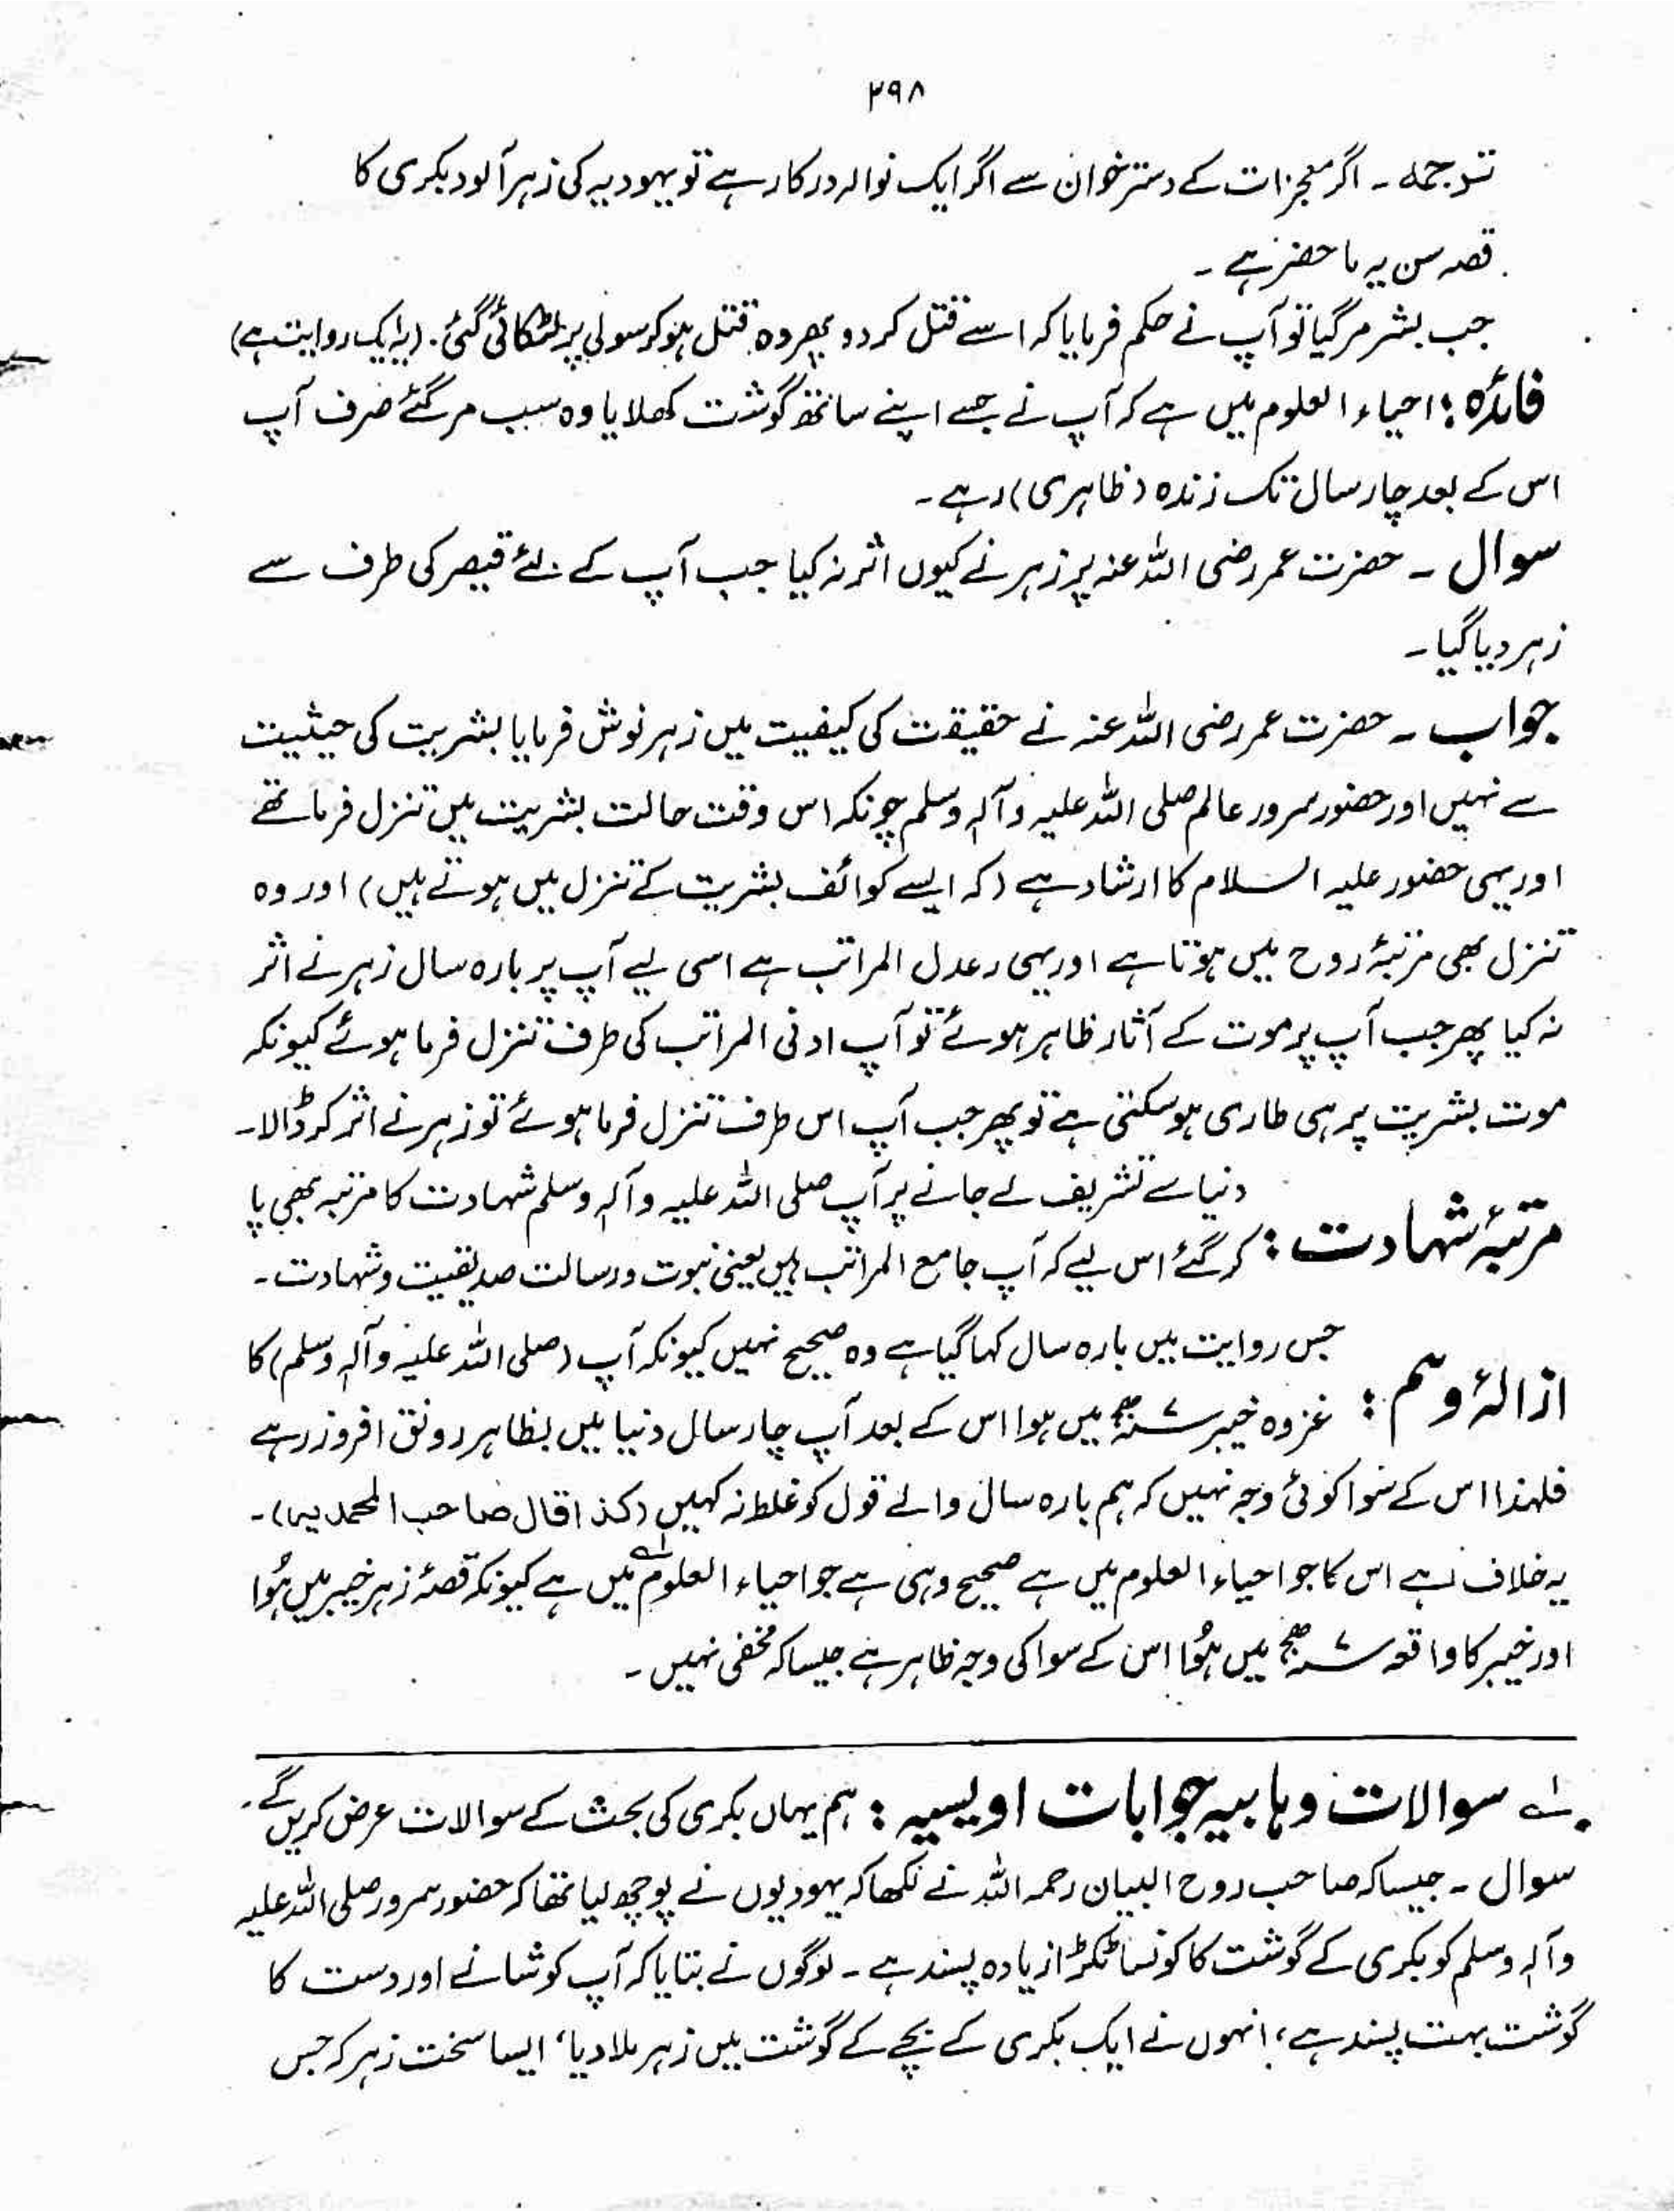 ۲۹۸
ترجمہ ۔ اگر معجزات کے دسترخوان سے اگر ایک نوالہ درکار ہے تو یہودیہ کی زہر آلود بکری کا
قصہ سن یہ ما حضر ہے ۔
جب بشر مر گیا تو آپ نے حکم فرمایا کہ اسے قتل کر دو پھر وہ قتل ہو کر سولی پر لٹکائی گئی . (یہ ایک روایت ہے)
فائدہ : احیاء العلوم میں ہے کہ آپ نے جسے اپنے ساتھ گوشت کھلایا وہ سب مر گئے صرف آپ
اس کے بعد چار سال تک زندہ (ظاہری) رہے ۔
سوال ۔ حضرت عمر رضی اللہ عنہ پر زہر نے کیوں اثر نہ کیا جب آپ کے لئے قیصر کی طرف سے
زہر دیا گیا ۔
جواب ۔ حضرت عمر رضی اللہ عنہ نے حقیقت کی کیفیت میں زہر نوش فرمایا بشریت کی حیثیت
سے نہیں اور حضور سرور عالم صلی اللہ علیہ وآلہ وسلم چونکہ اس وقت حالت بشریت میں تنزل فرما تھے
اور یہی حضور علیہ السلام کا ارشاد ہے (کہ ایسے کوائف بشریت کے تنزل میں ہوتے ہیں) اور وہ
تنزل بھی مرتبۂ روح میں ہوتا ہے اور یہی عدل المراتب ہے اسی لیے آپ پر بارہ سال زہر نے اثر
نہ کیا پھر جب آپ پر موت کے آثار ظاہر ہوئے تو آپ ادنی المراتب کی طرف تنزل فرما ہوئے کیونکہ
موت بشریت پر ہی طاری ہو سکتی ہے تو پھر جب آپ اس طرف تنزل فرما ہوئے تو زہر نے اثر کر ڈالا ۔
مرتبۂ شہادت : دنیا سے تشریف لے جانے پر آپ صلی اللہ علیہ وآلہ وسلم شہادت کا مرتبہ بھی پا
کر گئے اس لیے کہ آپ جامع المراتب ہیں یعنی نبوت ورسالت صدیقیت وشہادت ۔
ازالۂ وہم : جس روایت میں بارہ سال کہا گیا ہے وہ صحیح نہیں کیونکہ آپ (صلی اللہ علیہ وآلہ وسلم) کا
غزوہ خیبر ۷ھ میں ہوا اس کے بعد آپ چار سال دنیا میں بظاہر رونق افروز رہے
فلہٰذا اس کے سوا کوئی وجہ نہیں کہ ہم بارہ سال والے قول کو غلط نہ کہیں (کذا قال صاحب المحمدیہ) ۔
یہ خلاف ہے اس کا جو احیاء العلوم میں ہے صحیح وہی ہے جو احیاء العلوم میں ہے کیونکہ قصۂ زہر خیبر میں ہُوا
اور خیبر کا واقعہ ۷ھ میں ہُوا اس کے سوا کی وجہ ظاہر ہے جیسا کہ مخفی نہیں ۔
لہ سوالات وہابیہ جوابات اویسیہ : ہم یہاں بکری کی بحث کے سوالات عرض کریں گے ۔
سوال ۔ جیسا کہ صاحب روح البیان رحمہ اللہ نے لکھا کہ یہودیوں نے پوچھ لیا تھا کہ حضور سرور صلی اللہ علیہ
وآلہ وسلم کو بکری کے گوشت کا کونسا ٹکڑا زیادہ پسند ہے ۔ لوگوں نے بتایا کہ آپ کو شانے اور دست کا
گوشت بہت پسند ہے، انہوں نے ایک بکری کے بچے کے گوشت میں زہر ملا دیا، ایسا سخت زہر کہ جس